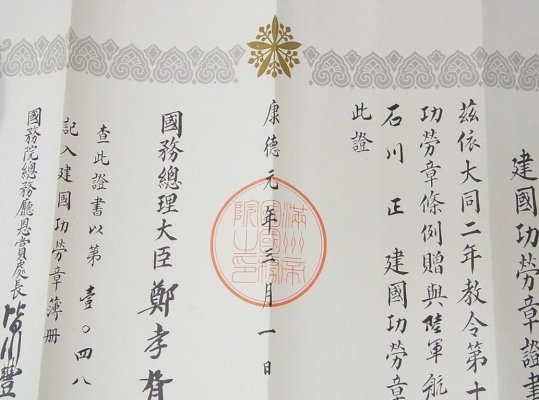 建國功勞章證書
茲依大同二年教令第十
功勞章條例贈與陸軍航
石川正 建國功勞章
此證
康德元年三月一日
國務總理大臣 鄭孝胥
查此證書以第壹〇四八
記入建國功勞章簿冊
國務院總務廳恩賞處長 皆川豐
滿洲帝
國國務
院之印